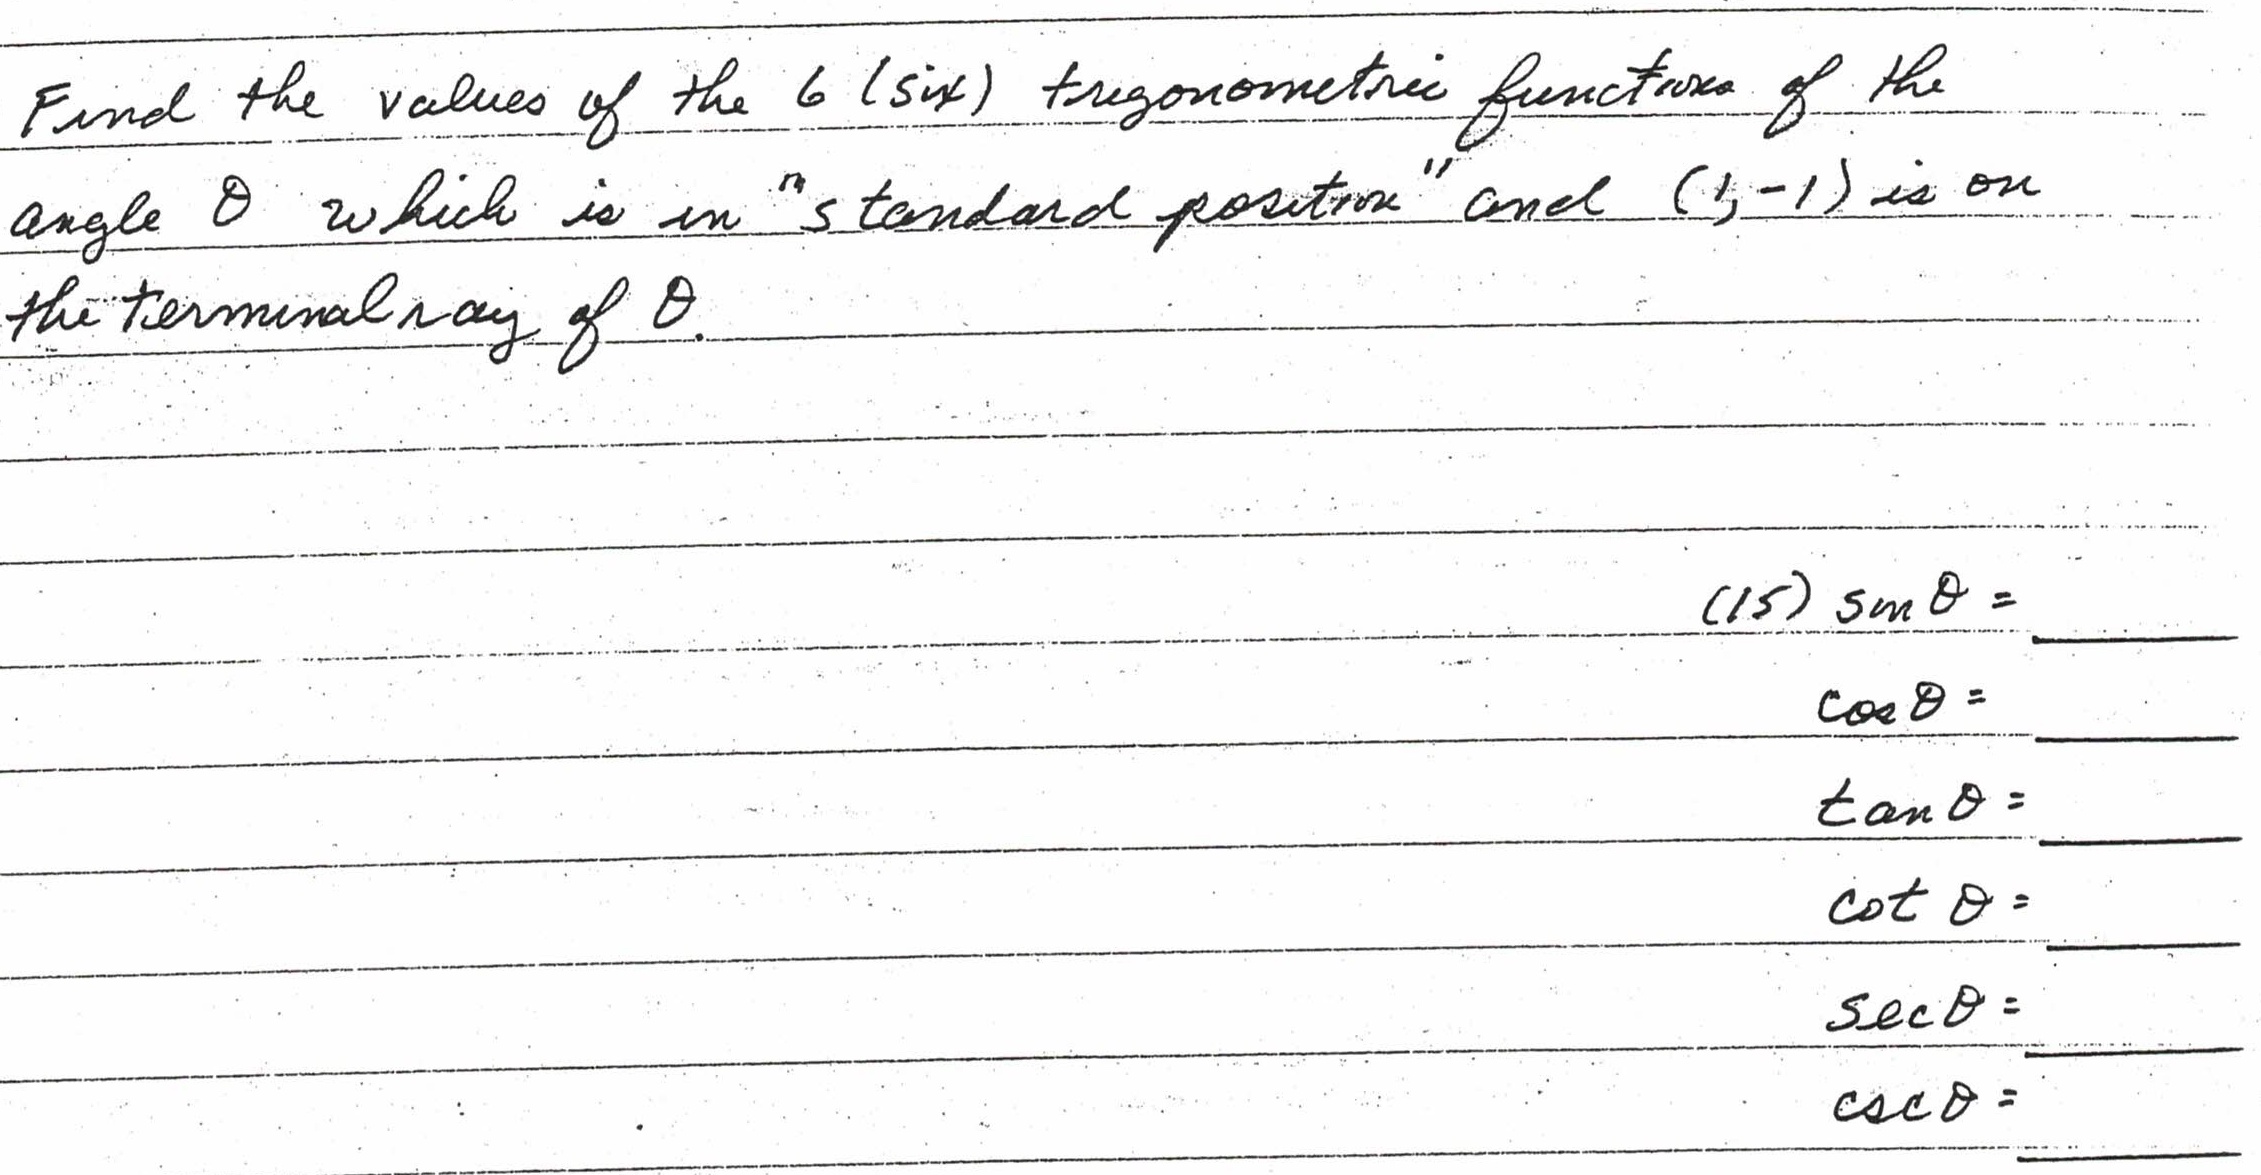 Find the values of the 6 (six) trigonometric functions of the
angle θ which is in "standard position" and (1,-1) is on
the terminal ray of θ.
(15) sin θ =
cos θ =
tan θ =
cot θ =
sec θ =
csc θ =